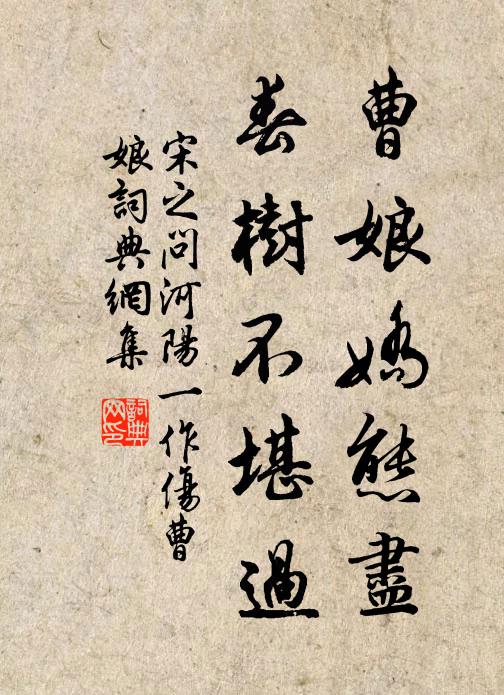 曹娘嬌態盡
春樹不堪過
宋之問河陽一作傷曹
娘詞典網集
詞典網印